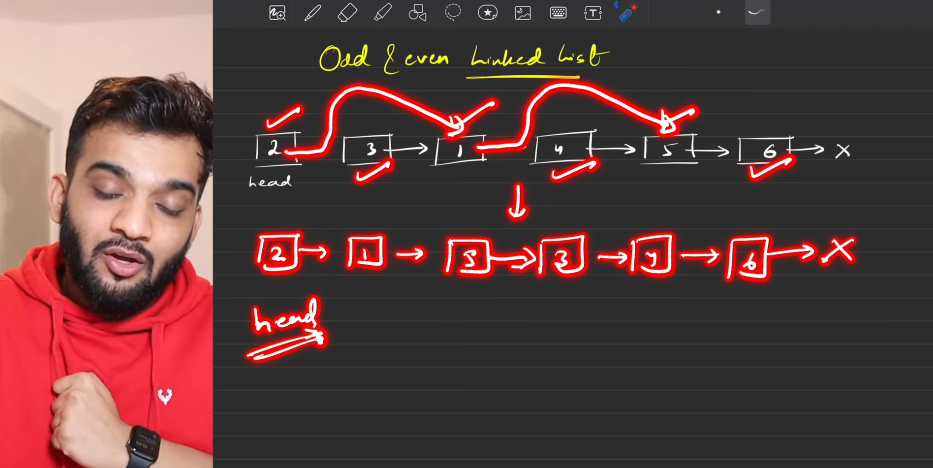 Odd & even Linked List
2 3 → 1 4 → 5 → 6 → X
head
↓
2 → 1 → 5 → 3 → 4 → 6 → X
head